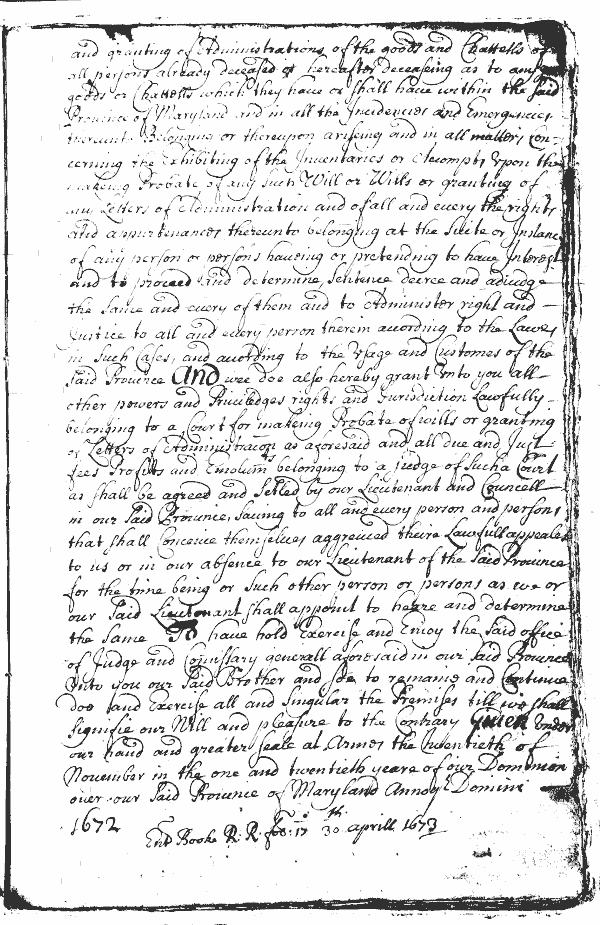 and granting of Administrations of the goods and Chattells of
all persons already deceased or hereafter deceaseing as to
goods or Chattells which they have or shall have within the said
Province of Maryland and in all the Incidencies and Emergencies
thereunto Belonging or thereupon ariseing and in all matters con-
cerning the Exhibiting of the Inventaries or Accompts upon the
makeing Probate of any such Will or Wills or granting of
any Letters of Administration and of all and every the rights
and appurtenances thereunto belonging at the Suite or Instance
of any person or persons haveing or pretending to have Interest
and to proceed and determine, Sentence decree and adiudge
the same and every of them and to Administer right and
Justice to all and every person therein according to the Lawes
in such Cases, and according to the Usage and Customes of the
said Province And wee doe also hereby grant Unto you all
other powers and Priviledges rights and Jurisdiction Lawfully
belonging to a Court for makeing Probate of wills or granting
of Letters of Administracon as aforesaid and all due and Just
fees Profitts and Emolumts belonging to a Judge of such a Court
as shall be agreed and Setled by our Lieutenant and Councell
in our said Province, Saving to all and every person and persons
that shall Conceive themselves aggreived theire Lawfull appeales
to us or in our absence to our Lieutenant of the said Province
for the time being or such other person or persons as we or
our said Lieutenant shall appoint to heare and determine
the same To have hold Exercise and Enjoy the said office
of Judge and Comissary generall aforesaid in our said Province
Unto you our said Brother and soe to remaine and Continue
doe and Exercise all and singular the Premises till we shall
signifie our Will and pleasure to the Contrary Given Under
our hand and greater seale at Armes the Twentieth of
November in the one and twentieth yeare of our Dominion
over our said Province of Maryland Annoq Domini
1672
Entd Booke R: R. fo: 17 30th aprill 1673